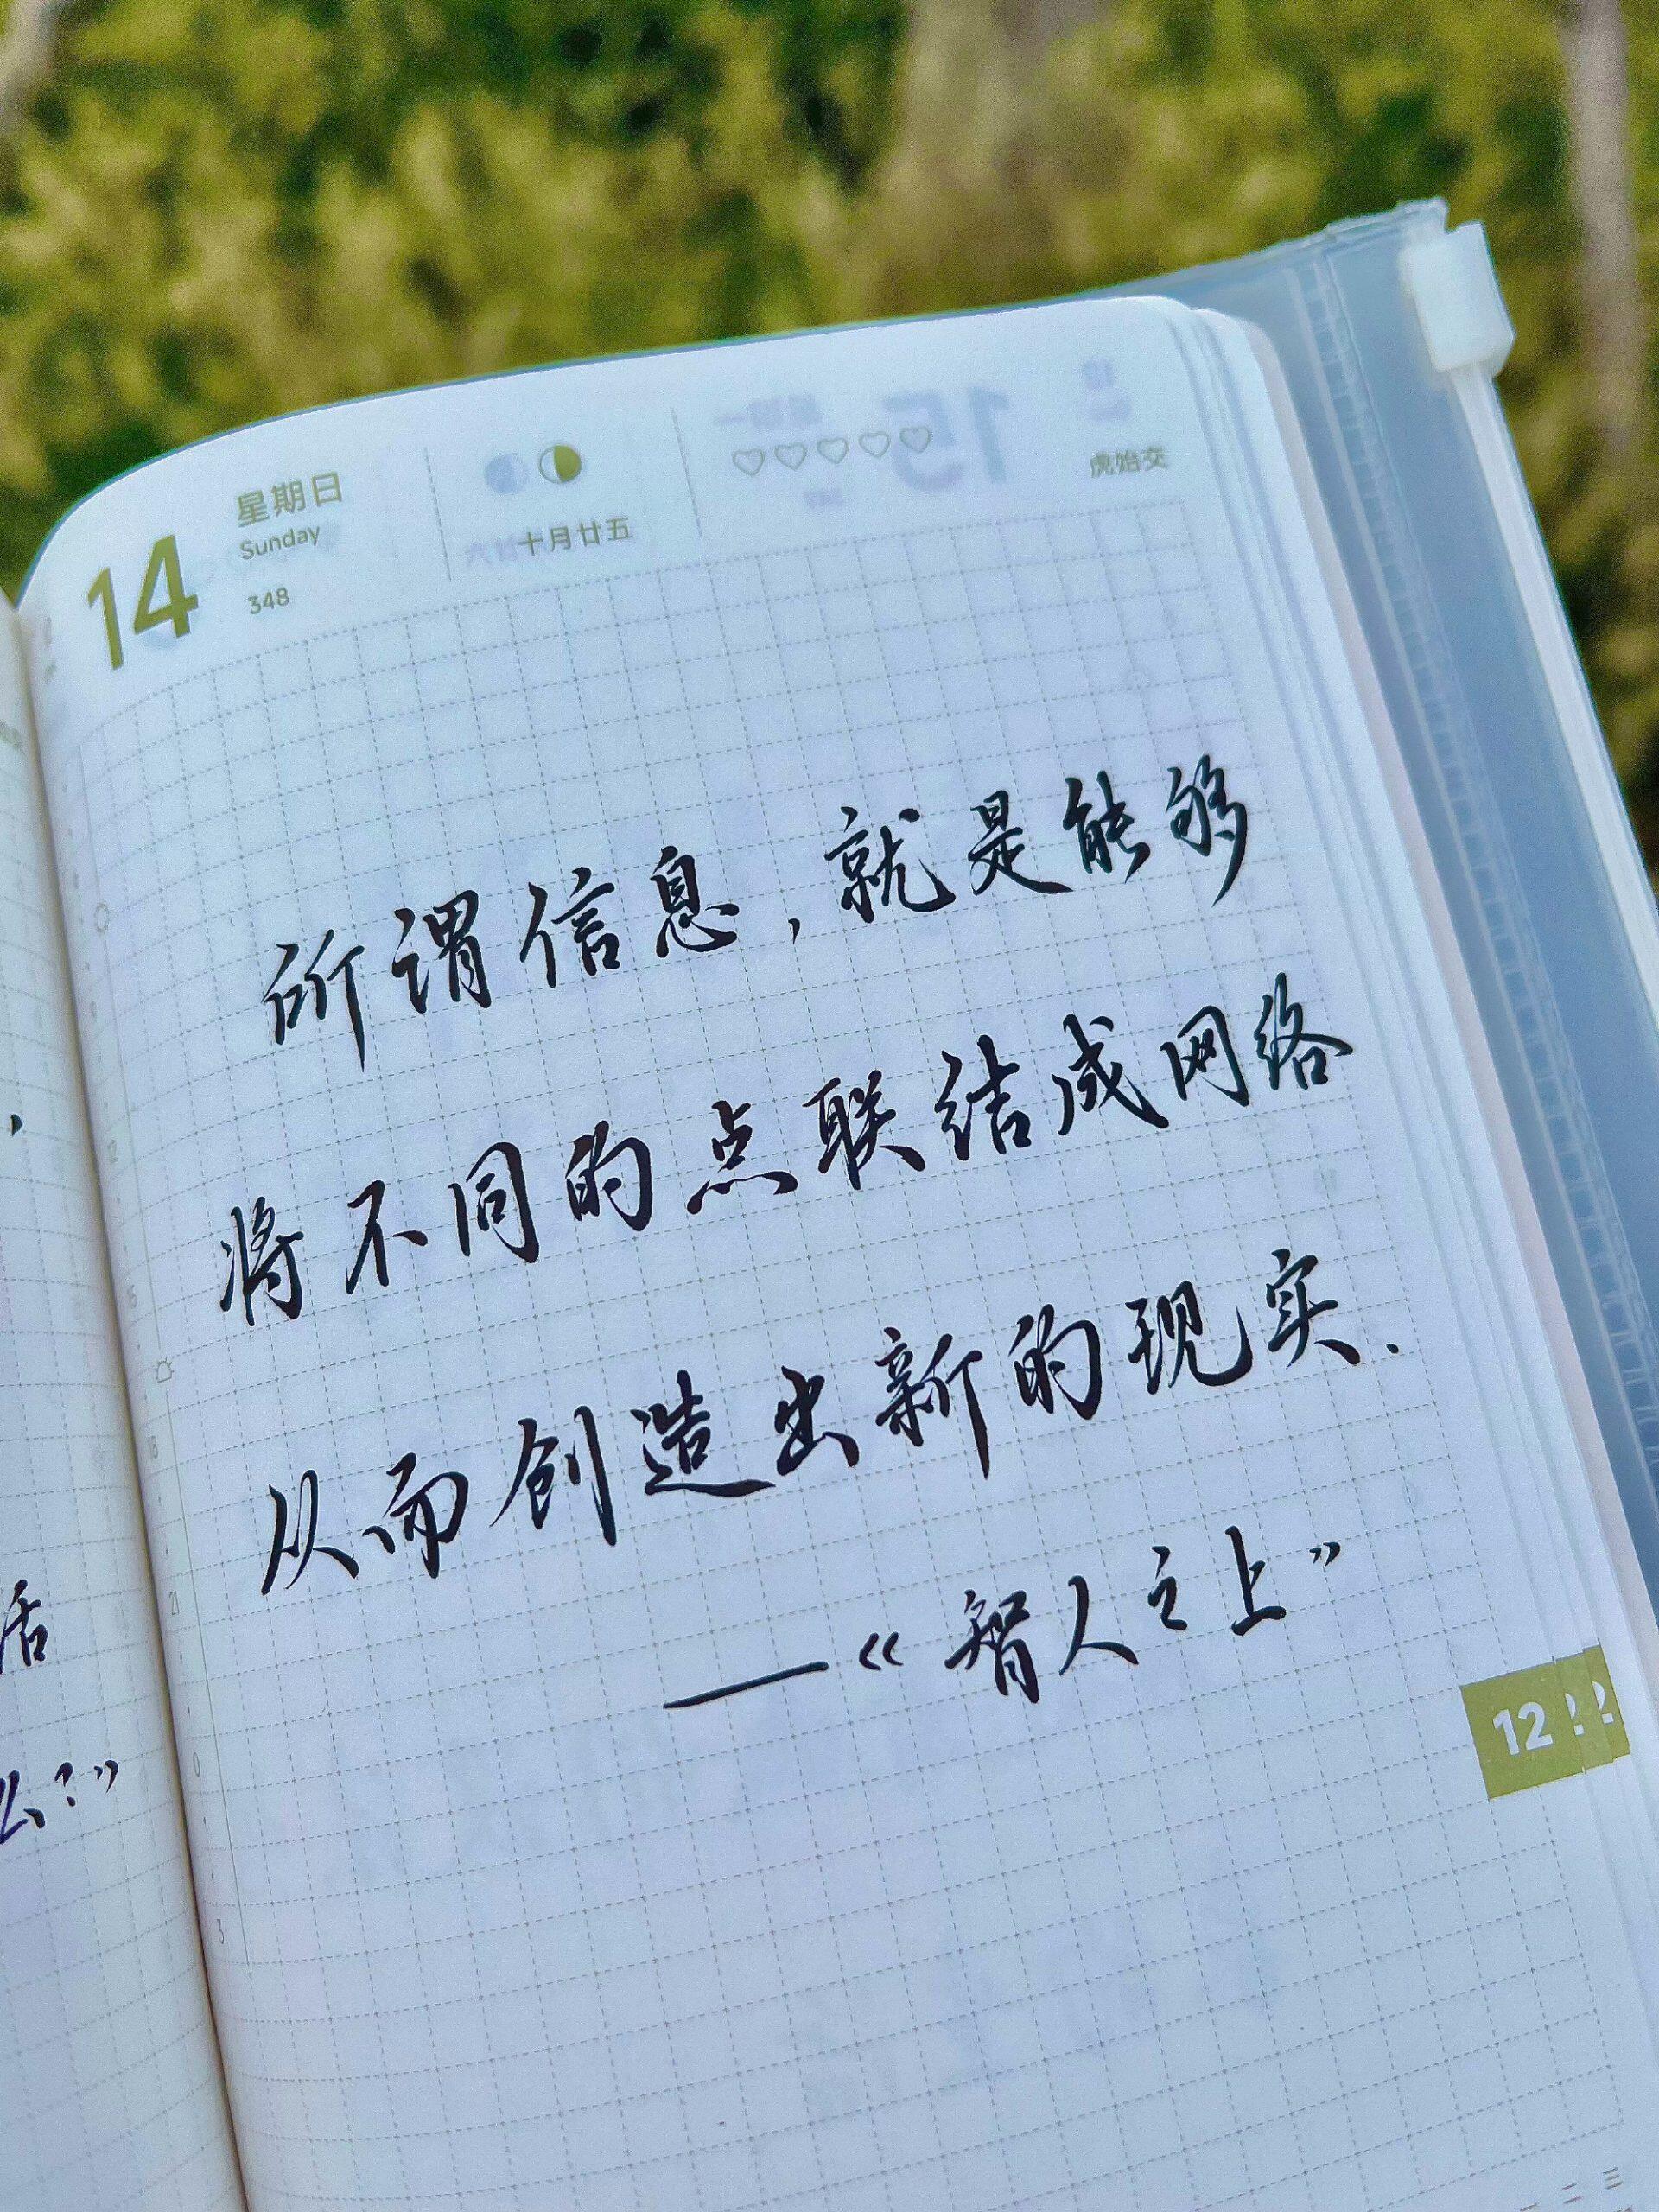 14
星期日
Sunday
348
十月廿五
虎始交
所谓信息,就是能够
将不同的点联结成网络
从而创造出新的现实.
—《智人之上”
12
,
活
么?”
12
15
18
21
0
3